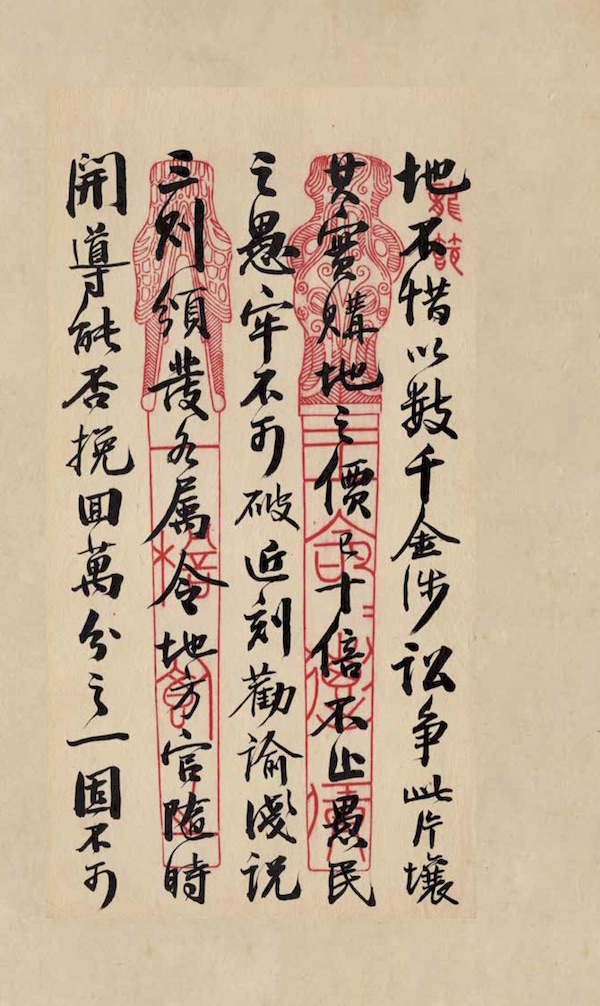 地不惜以数千金涉訟争此片壤
其實購地之價已十倍不止愚民
之愚牢不可破近刻勸諭淺説
三則須發各属令地方官隨時
開導能否挽回萬分之一固不可